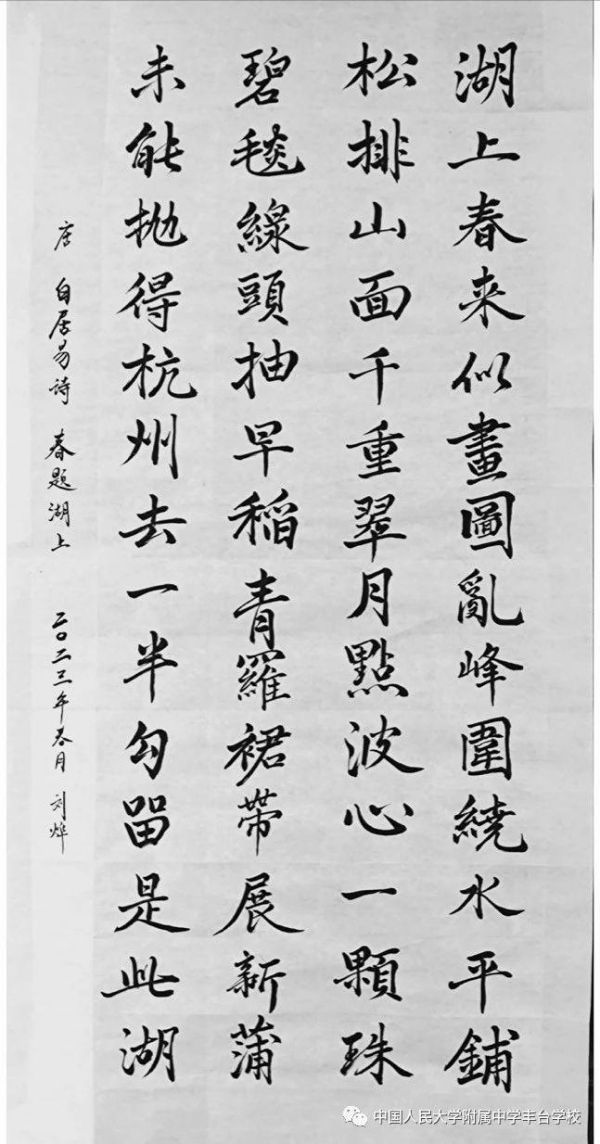 湖上春来似畫圖亂峰圍繞水平鋪
松排山面千重翠月點波心一顆珠
碧毯線頭抽早稻青羅裙带展新蒲
未能抛得杭州去一半勾留是此湖
唐 白居易诗 春题湖上 二〇二三年春月 刘烨
中国人民大学附属中学丰台学校